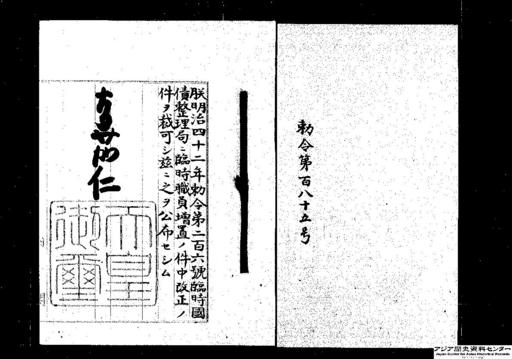 勅令第百八十五号
朕明治四十二年勅令第二百六號臨時國
債整理局ニ臨時職員增置ノ件中改正ノ
件ヲ裁可シ茲ニ之ヲ公布セシム
仁
天皇
御璽
アジア歴史資料センター
Japan Center for Asian Historical Records